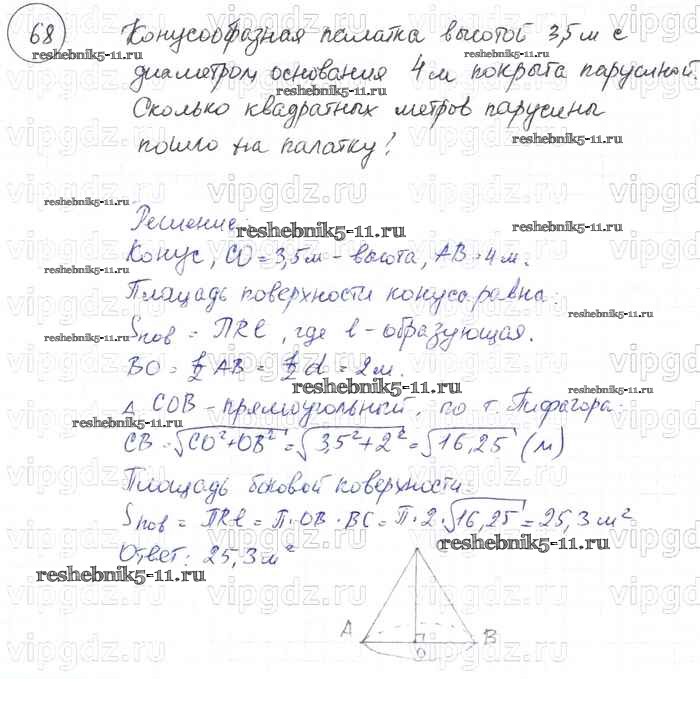 68 Конусообразная палатка высотой 3,5 м с
диаметром основания 4 м покрыта парусиной.
Сколько квадратных метров парусины
пошло на палатку?
Решение:
Конус, CO = 3,5 м – высота, AB = 4 м.
Площадь поверхности конуса равна:
Sпов = ПRl, где l – образующая.
BO = 1/2 AB = 1/2 d = 2 м.
Δ COB – прямоугольный, по т. Пифагора:
CB = √CO²+OB² = √3,5²+2² = √16,25 (м)
Площадь боковой поверхности:
Sпов = ПRl = П · OB · BC = П · 2 · √16,25 = 25,3 м²
Ответ: 25,3 м²
A B
O
reshebnik5-11.ru
reshebnik5-11.ru
reshebnik5-11.ru
reshebnik5-11.ru
reshebnik5-11.ru
reshebnik5-11.ru
reshebnik5-11.ru
reshebnik5-11.ru
reshebnik5-11.ru
reshebnik5-11.ru
reshebnik5-11.ru
reshebnik5-11.ru
reshebnik5-11.ru
reshebnik5-11.ru
vipgdz.ru